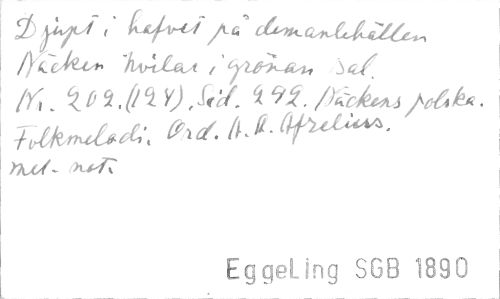 Djupt i hafvet på demantehällen
Näcken hvilar i grönan sal.
Nr. 202.(124). Sid. 292. Näckens polska.
Folkmelodi. Ord. A. A. Afzelius.
mel. not.
EggeLing SGB 1890